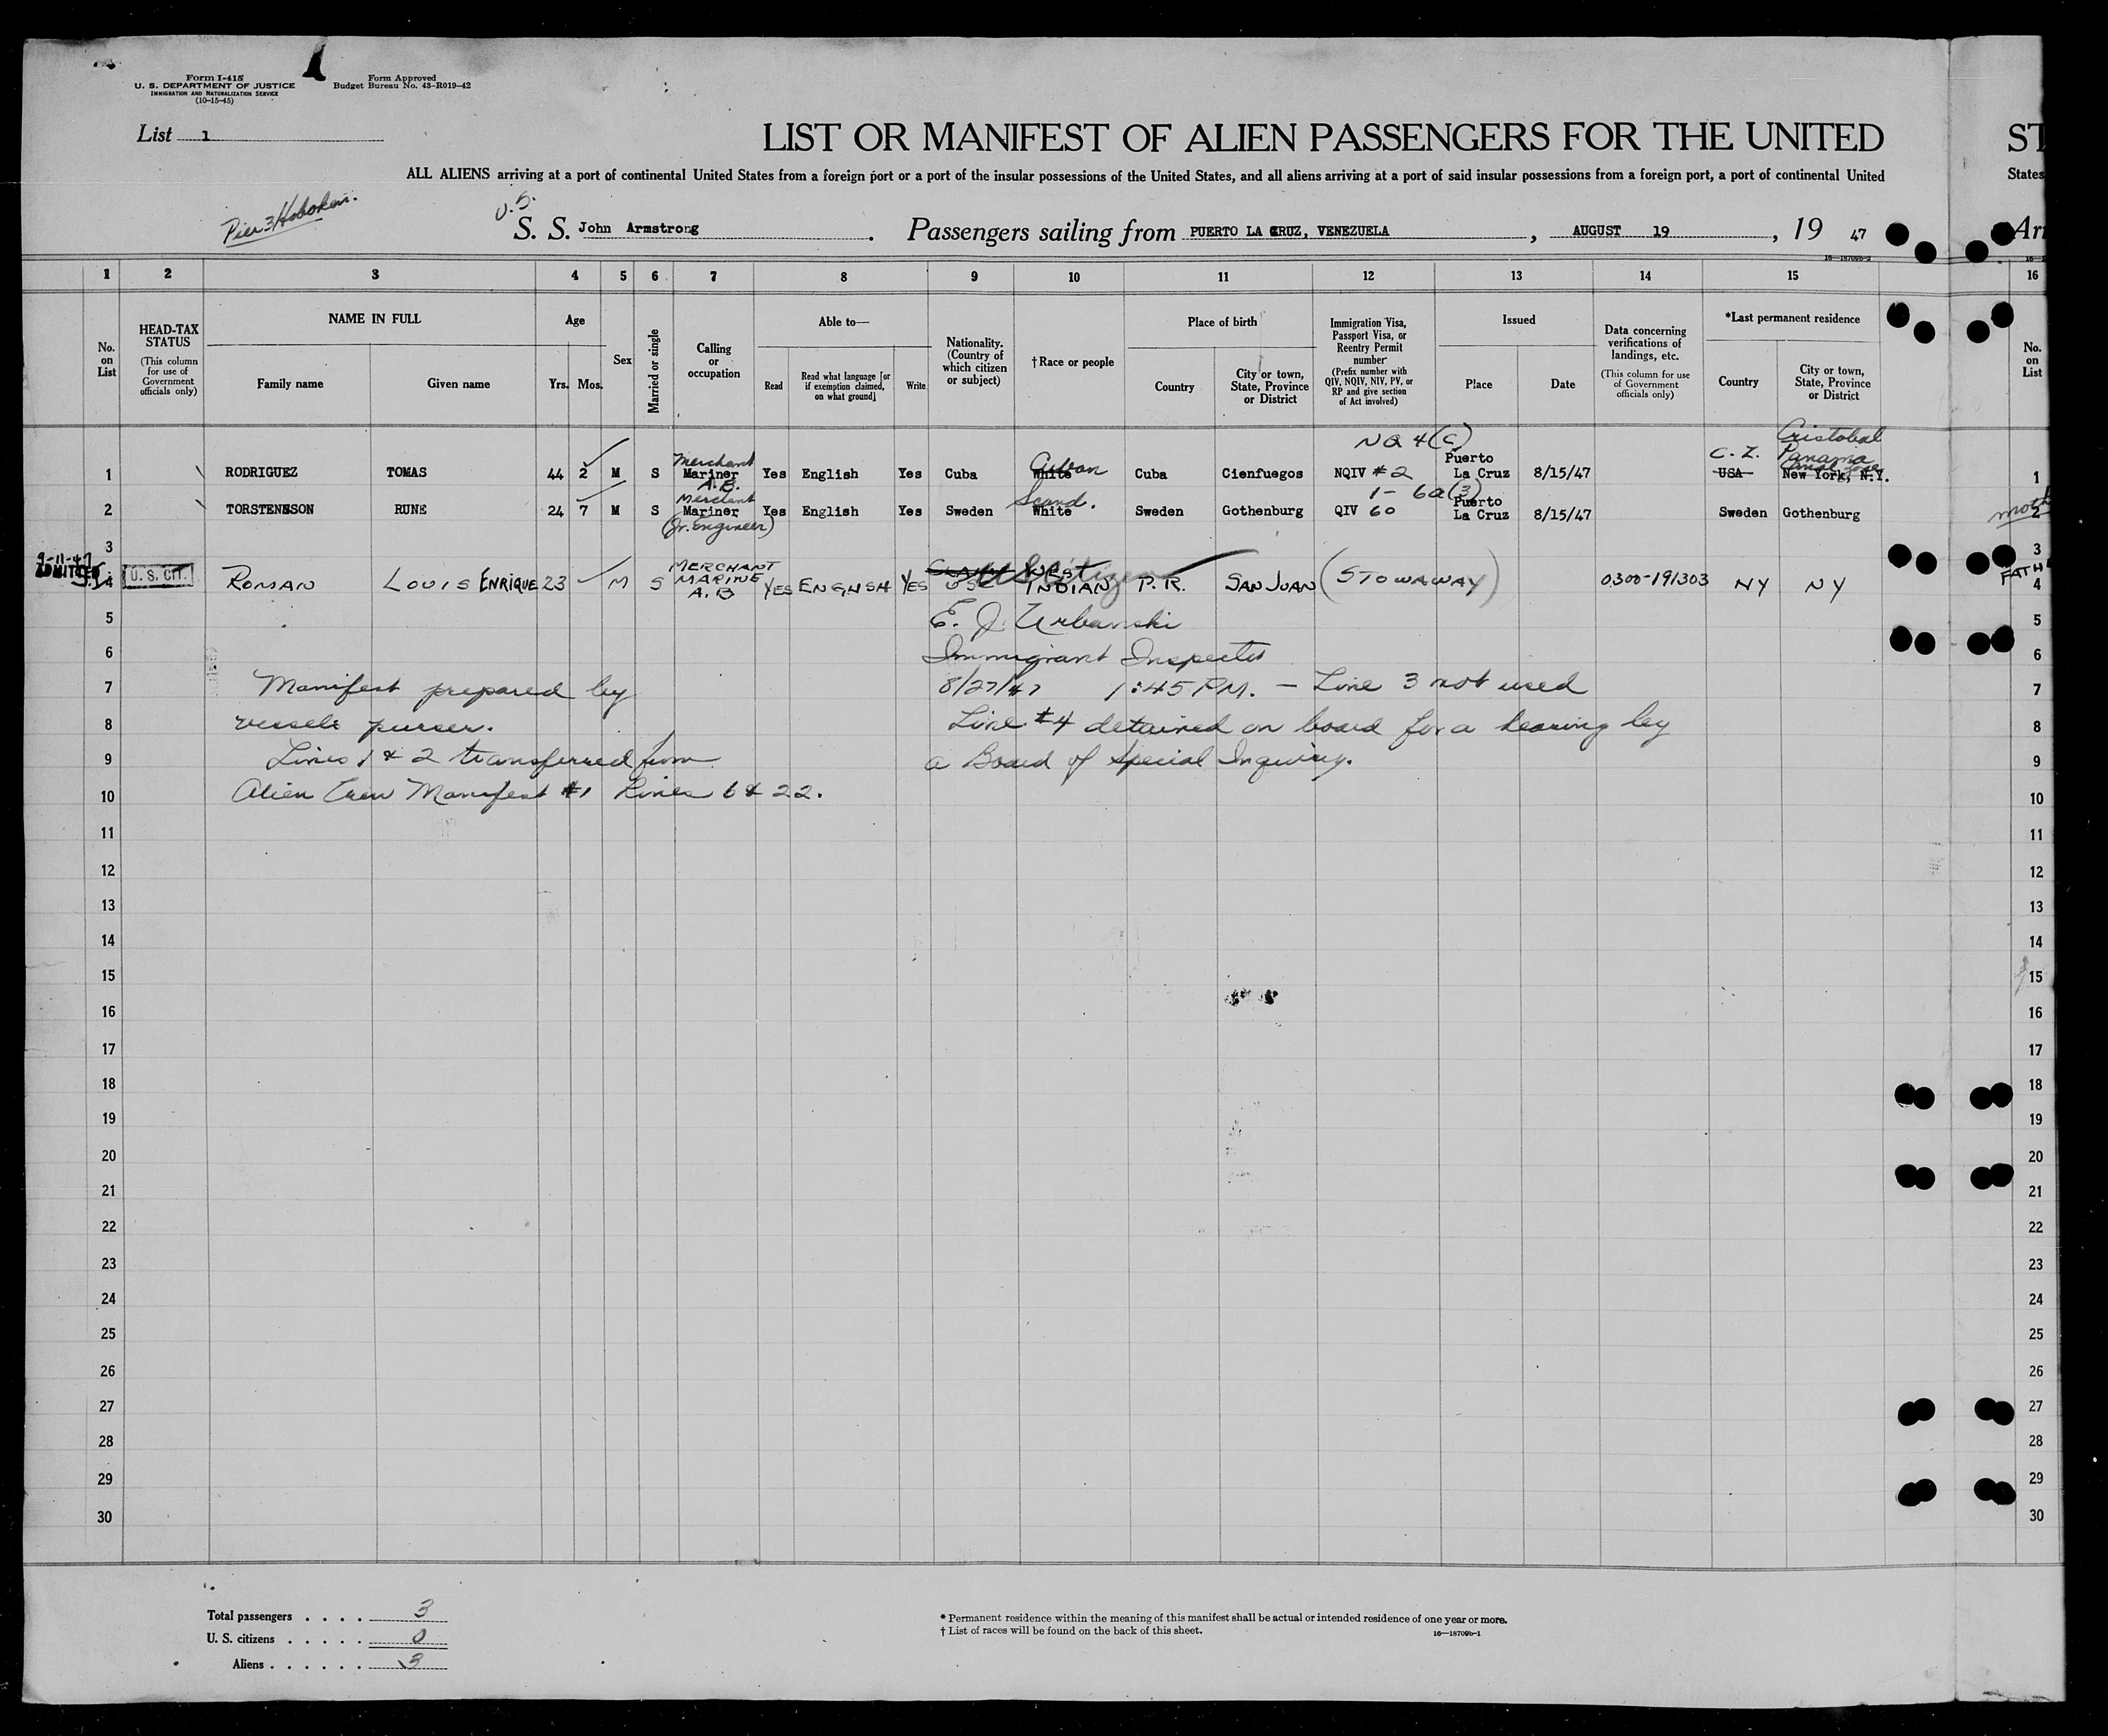 1
Form I-415
U. S. DEPARTMENT OF JUSTICE
IMMIGRATION AND NATURALIZATION SERVICE
(10-15-45)
Form Approved
Budget Bureau No. 43-R019-42
List 1
LIST OR MANIFEST OF ALIEN PASSENGERS FOR THE UNITED ST
ALL ALIENS arriving at a port of continental United States from a foreign port or a port of the insular possessions of the United States, and all aliens arriving at a port of said insular possessions from a foreign port, a port of continental United States
Pier 3 Hoboken.
U.S.
S. S. John Armstrong . Passengers sailing from PUERTO LA CRUZ, VENEZUELA , AUGUST 19 , 19 47 Arr
1 2 3 4 5 6 7 8 9 10 11 12 13 14 15 16
No. on List
HEAD-TAX STATUS
(This column for use of Government officials only)
NAME IN FULL
Family name Given name
Age
Yrs. Mos.
Sex
Married or single
Calling or occupation
Able to—
Read Read what language [or if exemption claimed, on what ground] Write
Nationality. (Country of which citizen or subject)
† Race or people
Place of birth
Country City or town, State, Province or District
Immigration Visa, Passport Visa, or Reentry Permit number
(Prefix number with QIV, NQIV, NIV, PV, or RP and give section of Act involved)
Issued
Place Date
Data concerning verifications of landings, etc.
(This column for use of Government officials only)
*Last permanent residence
Country City or town, State, Province or District
No. on List
Merchant Cuban NQ 4(c) C. Z. Cristobal Panama Canal Zone
1 RODRIGUEZ TOMAS 44 2 M S Mariner Yes English Yes Cuba White Cuba Cienfuegos NQIV #2 Puerto La Cruz 8/15/47 USA New York, N.Y. 1
A.B.
Merchant Scand. 1- 6a(3)
2 TORSTENSSON RUNE 24 7 M S Mariner Yes English Yes Sweden White Sweden Gothenburg QIV 60 Puerto La Cruz 8/15/47 Sweden Gothenburg 2
(Jr. Engineer)
3 3
9-11-47
ADMITTED
4 U. S. CIT. ROMAN LOUIS ENRIQUE 23 M S MERCHANT MARINE A.B YES ENGLISH YES USC US Citizen WEST INDIAN P.R. SAN JUAN (STOWAWAY) 0300-191303 NY NY 4
5 E. J. Urbanski 5
6 Immigrant Inspector 6
7 Manifest prepared by 8/27/47 1:45 P.M. — Line 3 not used 7
8 vessels purser. Line #4 detained on board for a hearing by 8
9 Lines 1 & 2 transferred from a Board of Special Inquiry. 9
10 Alien Crew Manifest #1 Lines 6 & 22. 10
11 11
12 12
13 13
14 14
15 15
16 16
17 17
18 18
19 19
20 20
21 21
22 22
23 23
24 24
25 25
26 26
27 27
28 28
29 29
30 30
Total passengers . . . . 3
U. S. citizens . . . . . 0
Aliens . . . . . . 3
* Permanent residence within the meaning of this manifest shall be actual or intended residence of one year or more.
† List of races will be found on the back of this sheet.
16—18709b-1